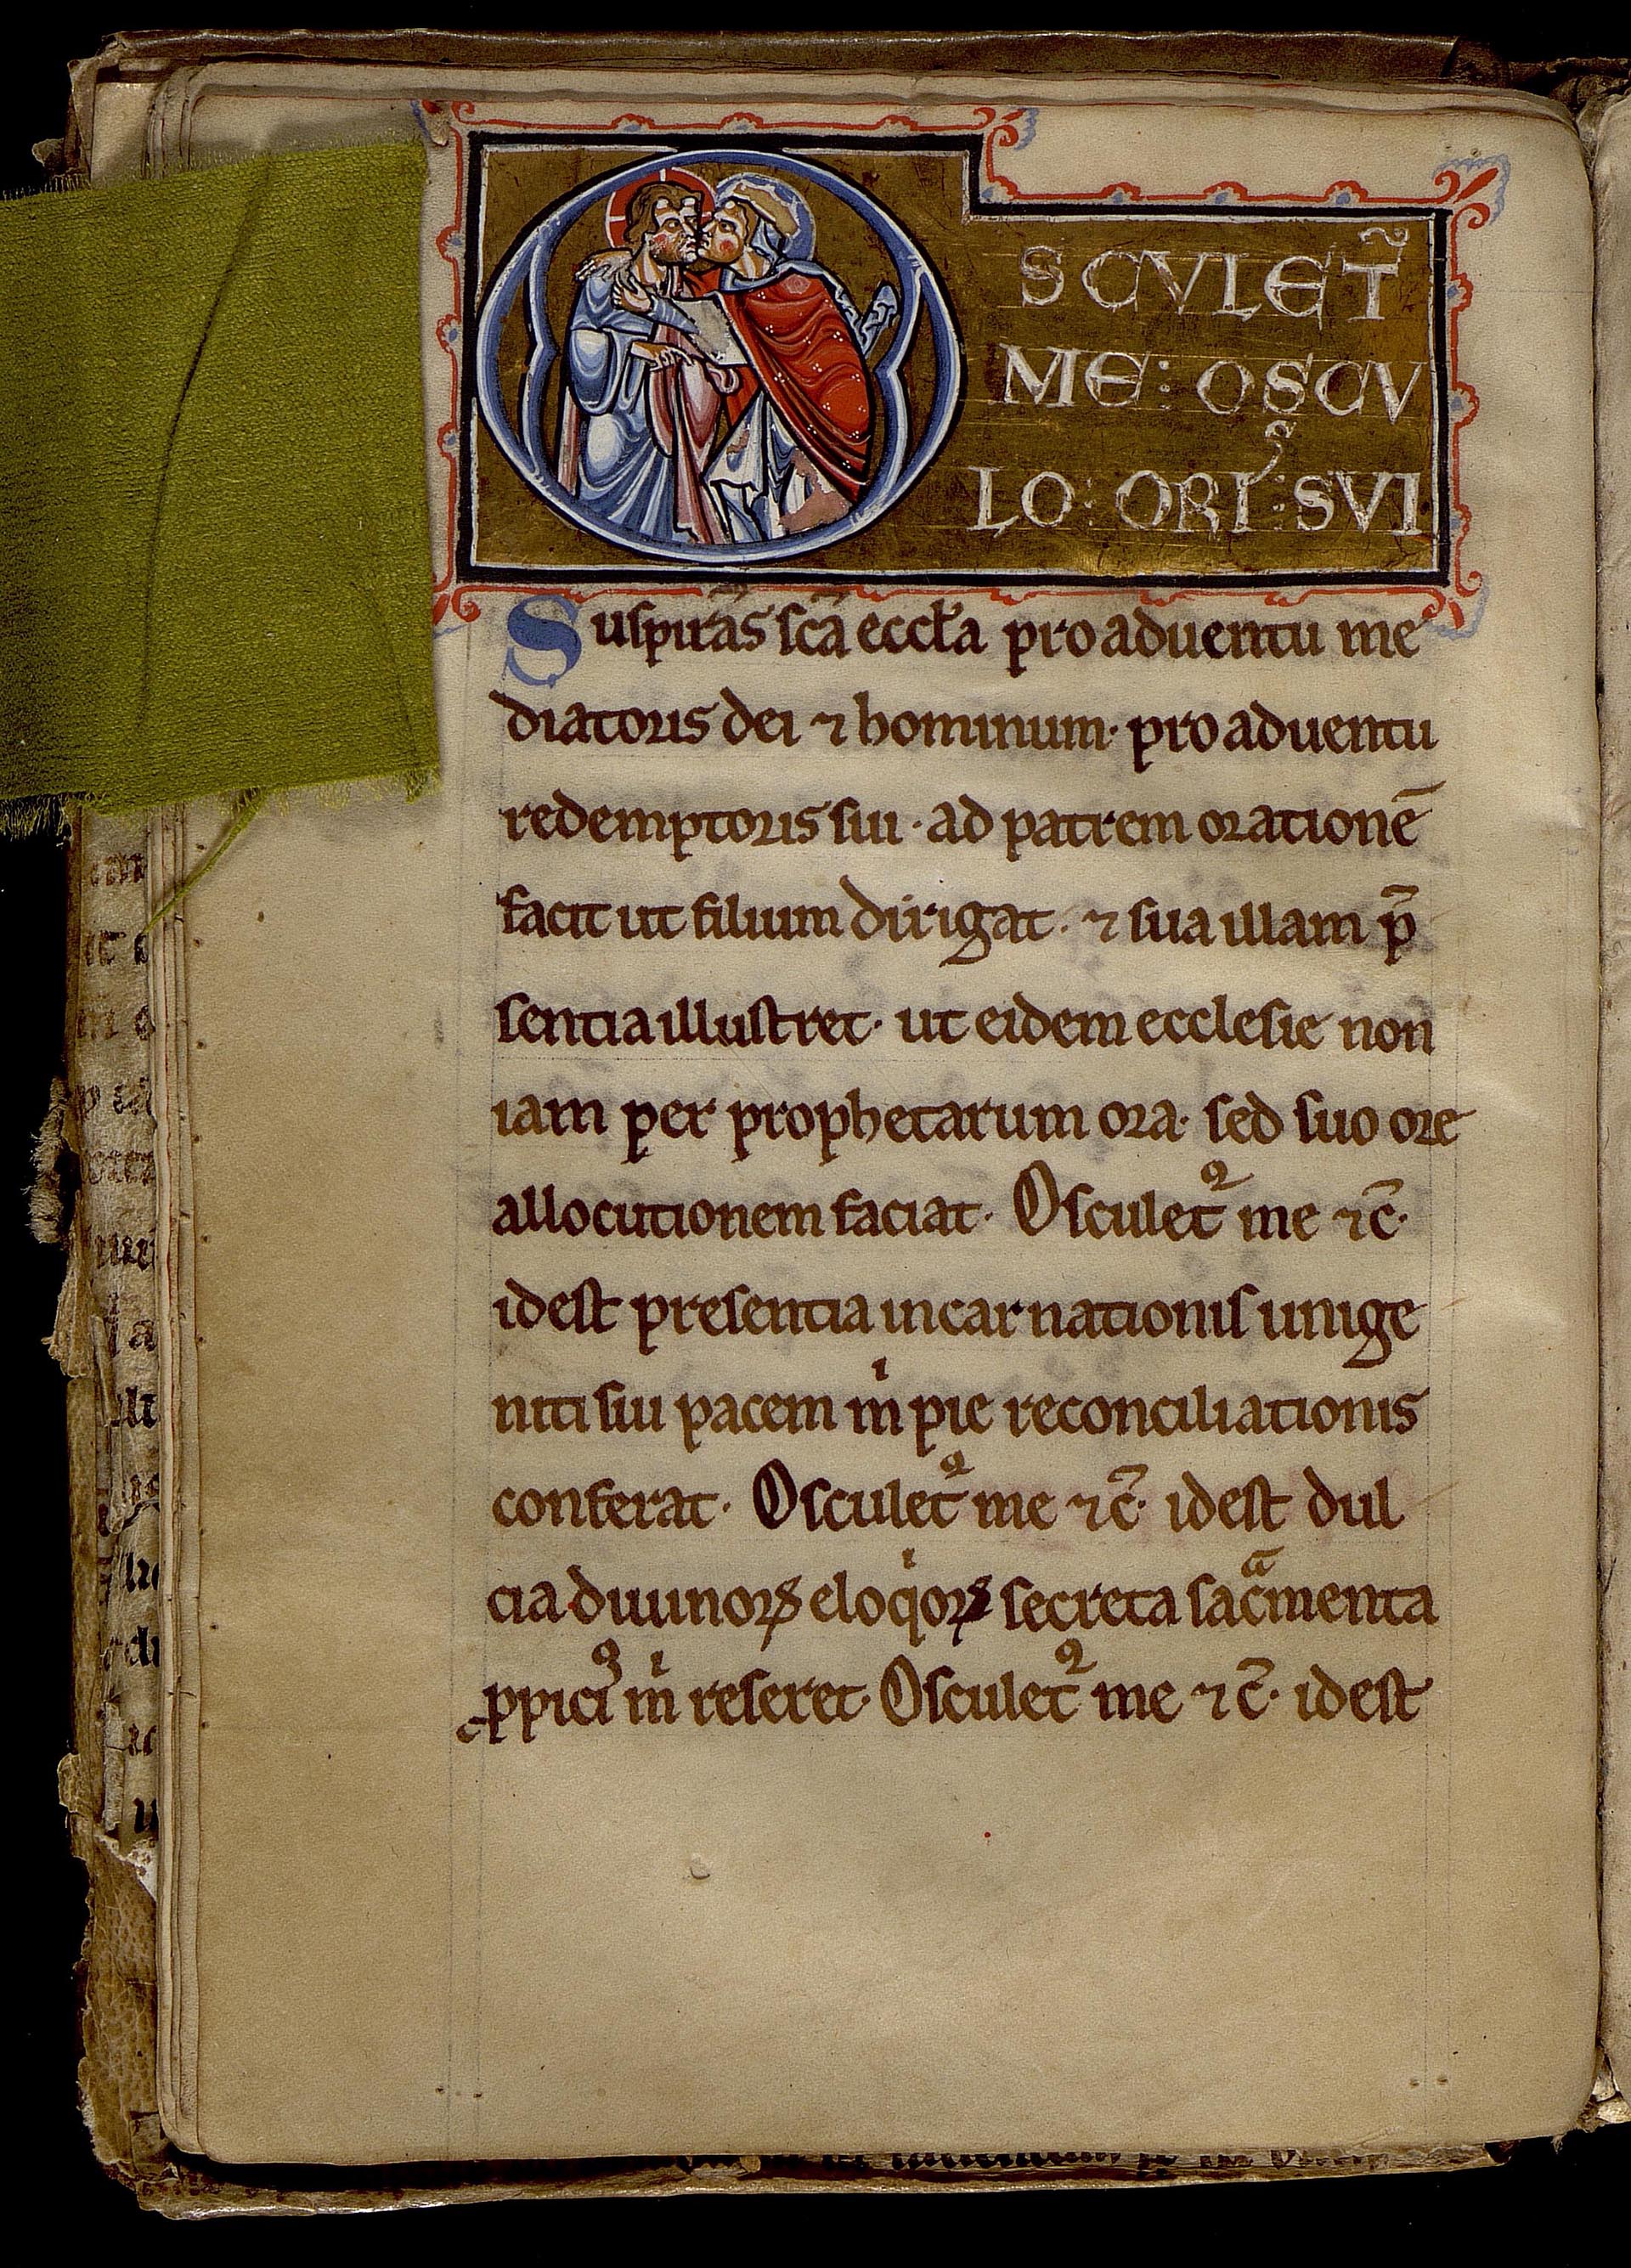 OSCULET᷑
ME : OSCU
LO : ORIꝰ : SUI
Suspirãs scã eccła pro aduentu me
diatoris dei ⁊ hominum · pro aduentu
redemptoris sui · ad patrem orationē
facit ut filium dirigat · ⁊ sua illam p̄
sentia illustret · ut eidem ecclesie non
iam per prophetarum ora · sed suo ore
allocutionem faciat · Osculet᷑ me ⁊c̄ ·
idest presentia incarnationis unige
niti sui pacem mͥ pie reconciliationis
conferat · Osculet᷑ me ⁊c̄ · idest dul
cia diuinoꝝ eloqͥoꝝ secreta sacᷓmenta
ꝓpiciꝰ mͥ reseret · Osculet᷑ me ⁊c̄ · idest